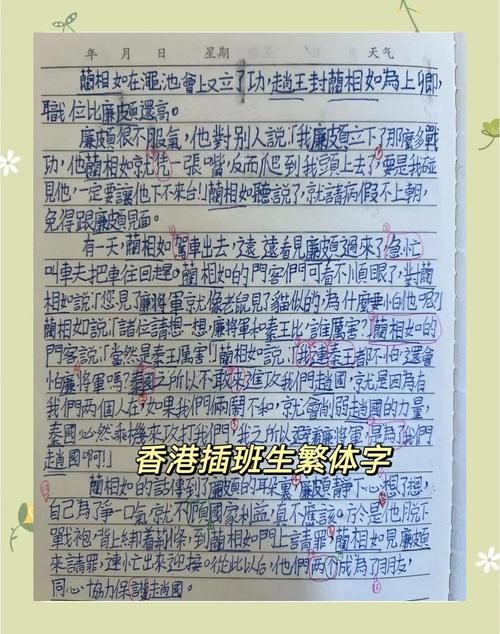 年 月 日 星期 天气
藺相如在澠池會上又立了功,趙王封藺相如為上卿,
職位比廉頗還高。
廉頗很不服氣,他對別人說:「我廉頗立下了那麼多戰
功,他藺相如就憑一張嘴,反而爬到我頭上去了,要是我碰
見他,一定要讓他下不來台!」藺相如聽說了,就請病假不上朝,
免得跟廉頗見面。
有一天,藺相如駕車出去,遠遠看見廉頗過來了,急忙
叫車夫把車往回走。藺相如的門客們可看不順眼了,對藺
相如說:「您見了廉將軍就像老鼠見了貓似的,為什麼要怕他呢?」
藺相如說:「諸位請想一想,廉將軍和秦王比,誰厲害?」藺相如的
門客說:「當然是秦王厲害!」藺相如說:「我連秦王都不怕,還會
怕廉將軍嗎?秦國之所以不敢來進攻我們趙國,就是因為有
我們兩個人在,如果我們倆鬧不和,就會削弱趙國的力量,
秦國必然乘機來攻打我們。我之所以避著廉將軍,是為我們
趙國啊!」
香港插班生繁体字
藺相如的話傳到了廉頗的耳朵裏,廉頗靜下心想了想,
自己為了爭一口氣,就不顧國家利益,真不應該。於是他脫下
戰袍,背上綁著荊條,到藺相如門上請罪,藺相如見廉頗
來請罪,連忙出來迎接。從此以后,他們两个成為了朋友,
同心協力保護趙國。